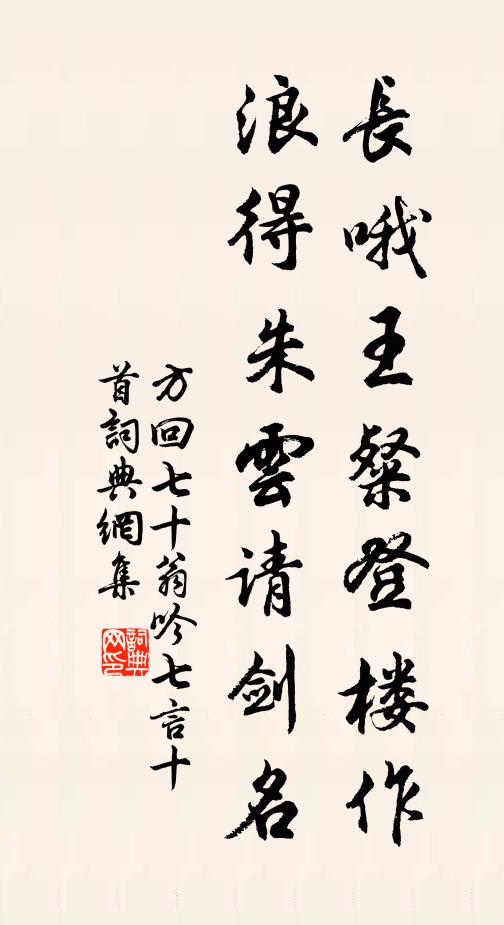 長哦王粲登楼作
浪得朱雲请剑名
方回七十翁吟七言十
首詞典網集
詞典
网印